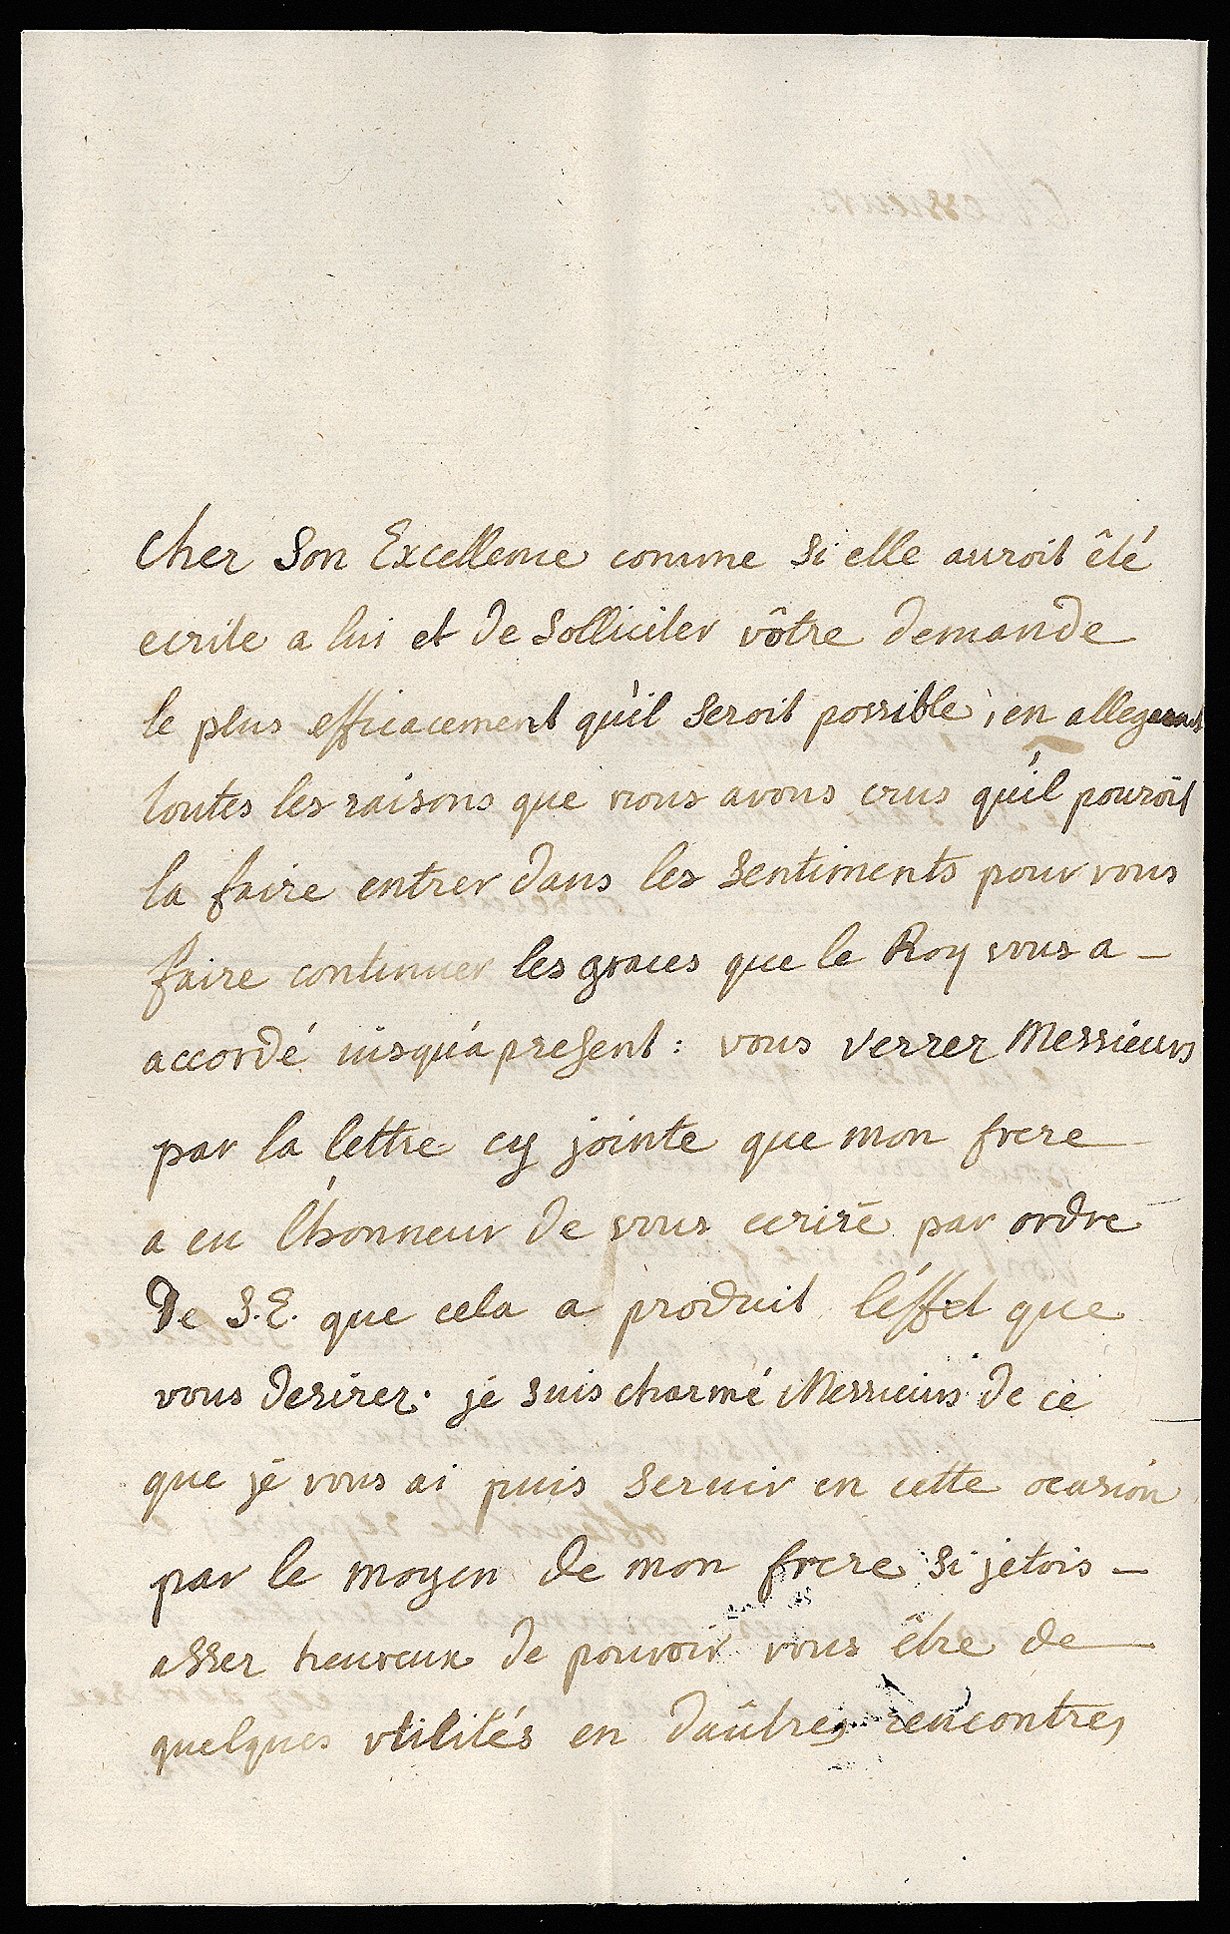 Cher Son Excellence comme Si elle auroit êté
ecrite a lui et de Solliciter vôtre demande
le plus efficacement qu'il Seroit possible, en allegeant
toutes les raisons que nous avons crus qu'il pouroit
la faire entrer dans les Sentiments pour vous
faire continuer les graces que le Roy vous a –
accordé iusqu'a present : vous verrez Messieurs
par la lettre cy jointe que mon frere
a eu l'honneur de vous ecrire par ordre
De S.E. que cela a produit l'éffet que
vous desirez. je suis charmé Messieurs de ce
que je vous ai puis Seruir en cette ocasion
par le moyen de mon frere Si jetois –
assez heureux de pouvoir vous être de
quelques vtilités en d'aûtres rencontres